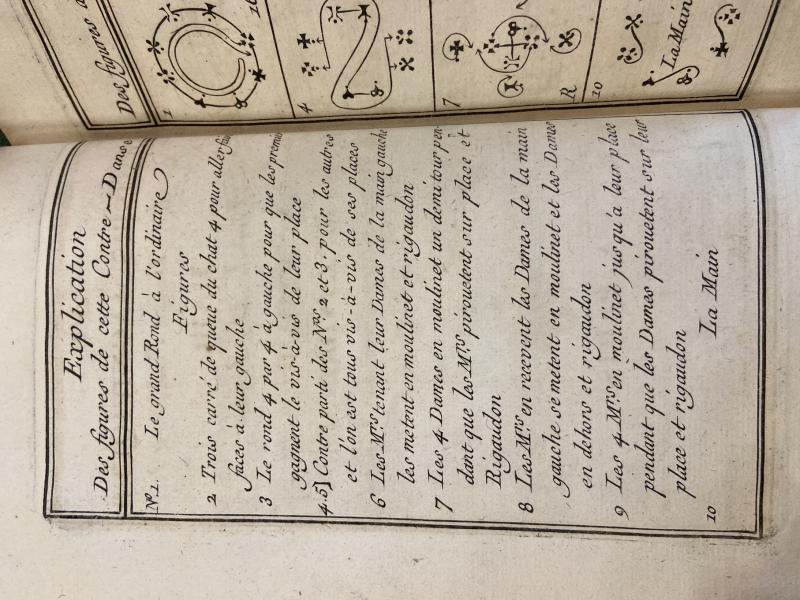 Explication
Des figures de cette Contre-Danse
Nº 1. Le grand Rond à l'ordinaire
Figures
2 Trois carré de queue du chat 4 pour aller
faces à leur gauche
3 Le rond 4 par 4 à gauche pour que les
gagnent le vis-à-vis de leur place
4.5] Contre partî des Nos. 2 et 3. pour les autres
et l'ón est tous vis-à-vis de ses places
6 Les Mrs tenant leur Dames de la main gauche
les metent en moulinet et rigaudon
7 Les 4 Dames en moulinet un demi tour pen-
dant que les Mrs piroüetent sur place et
Rigaudon
8 Les Mrs en recevent les Dames de la main
gauche se metent en moulinet et les Dames
en dehors et rigaudon
9 Les 4 Mrs en moulinet jusqu'a leur place
pendant que les Dames piroüetent sur leur
place et rigaudon
10 La Main
Des figures
1
4
7
R
10
La Main